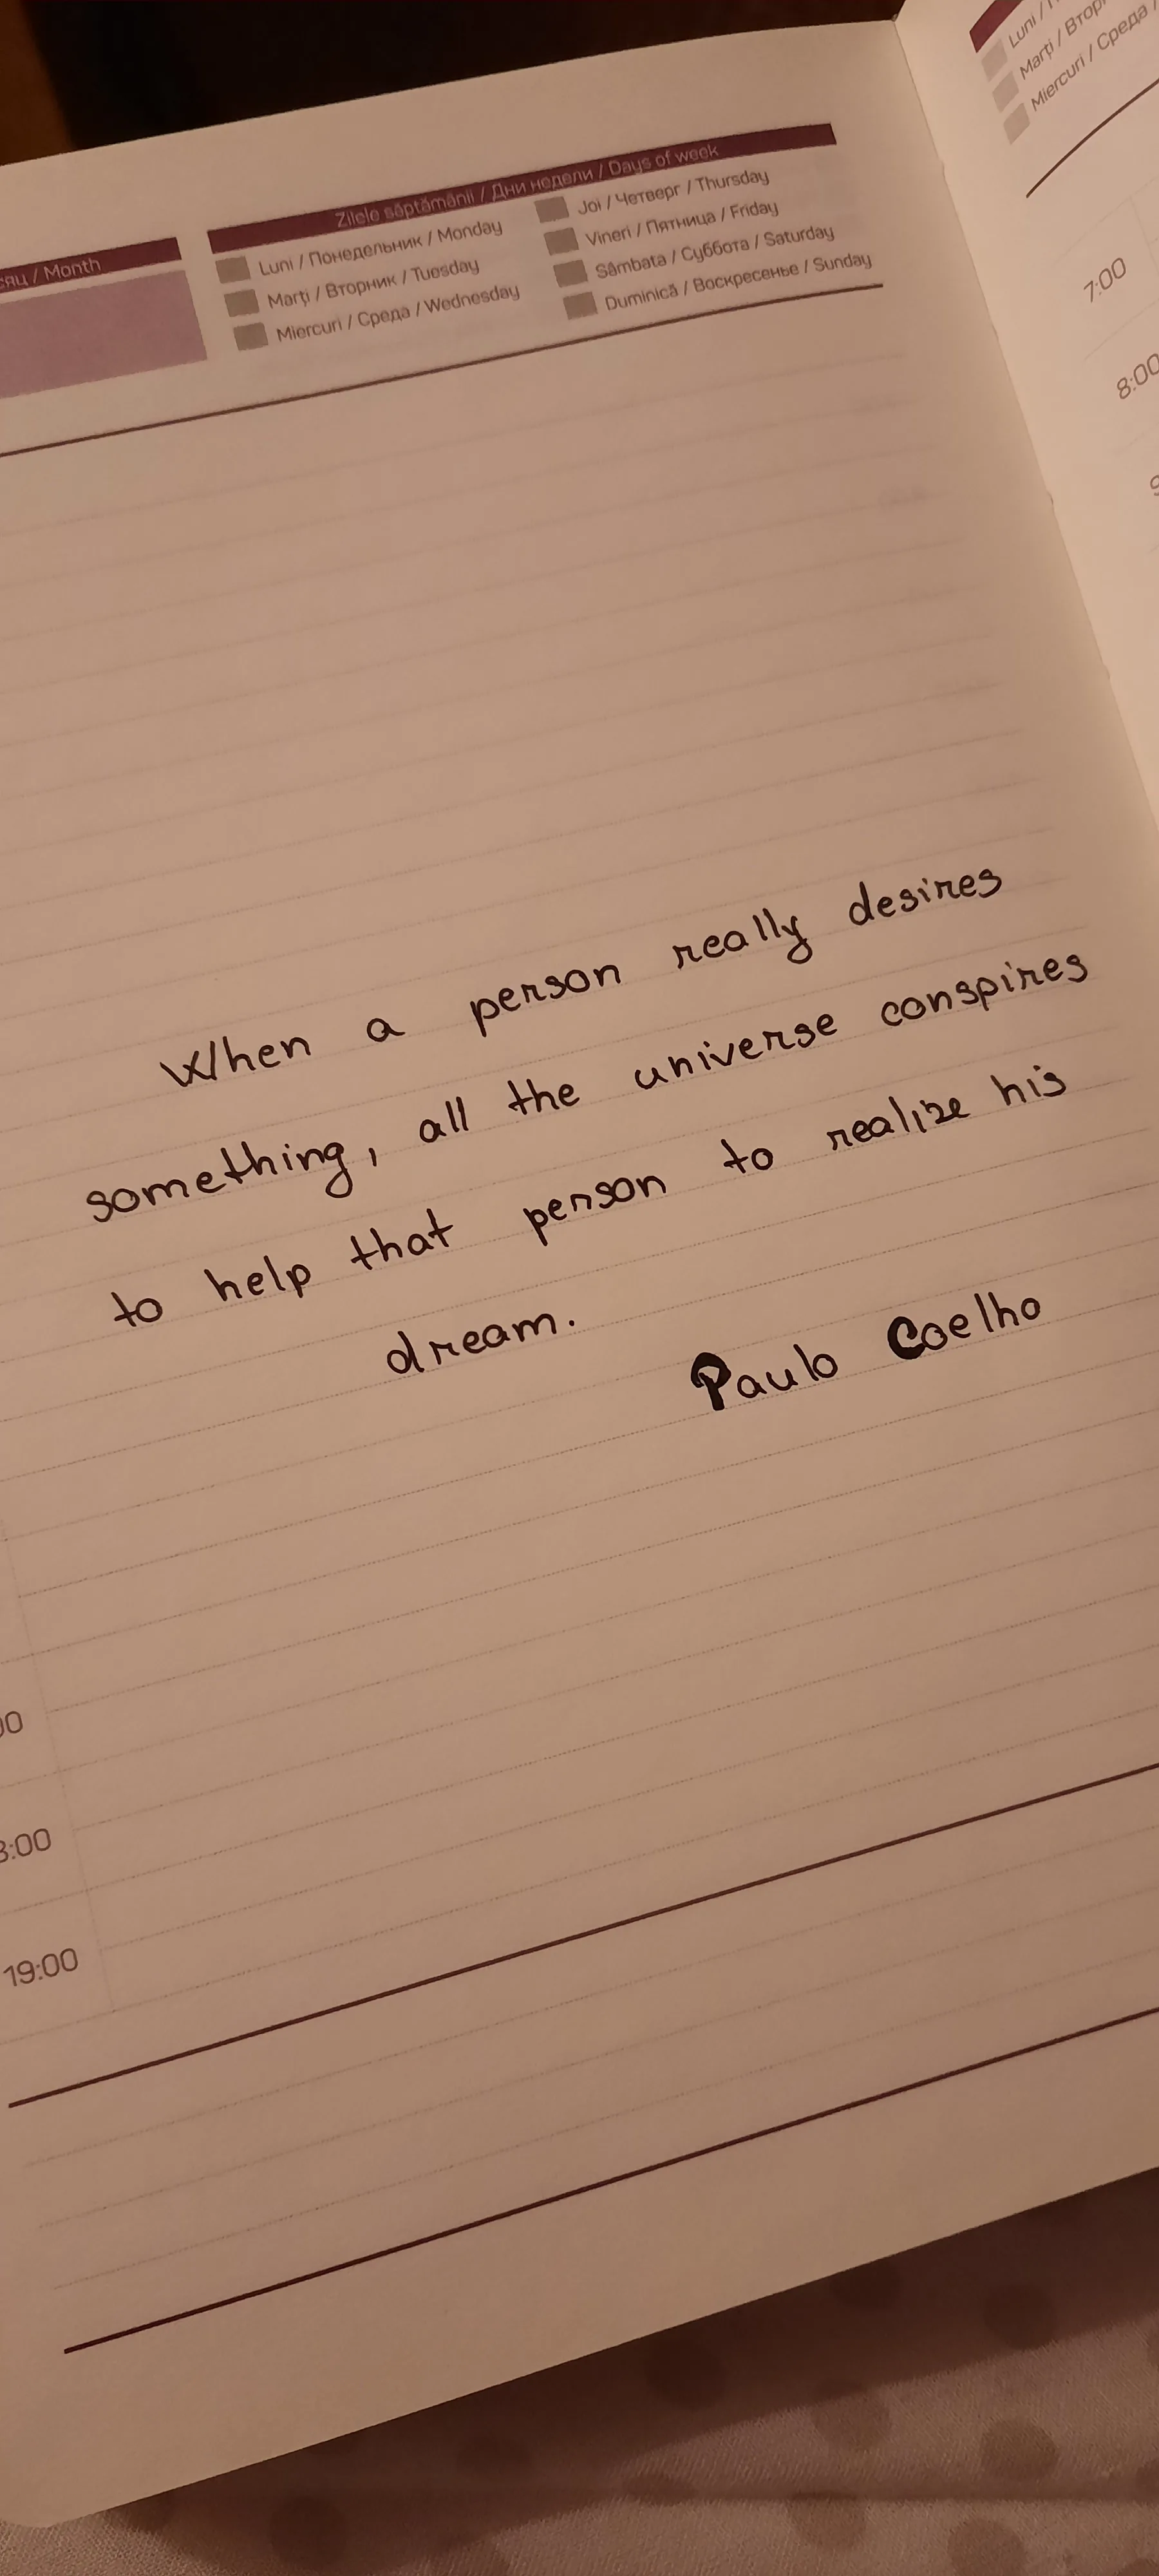 / Month
Zilele săptămânii / Дни недели / Days of week
Luni / Понедельник / Monday
Marţi / Вторник / Tuesday
Miercuri / Среда / Wednesday
Joi / Четверг / Thursday
Vineri / Пятница / Friday
Sâmbata / Суббота / Saturday
Duminică / Воскресенье / Sunday
When a person really desires
something, all the universe conspires
to help that person to realize his
dream.
Paulo Coelho
19:00
Luni /
Marţi /
Miercuri / Среда /
7:00
8:00